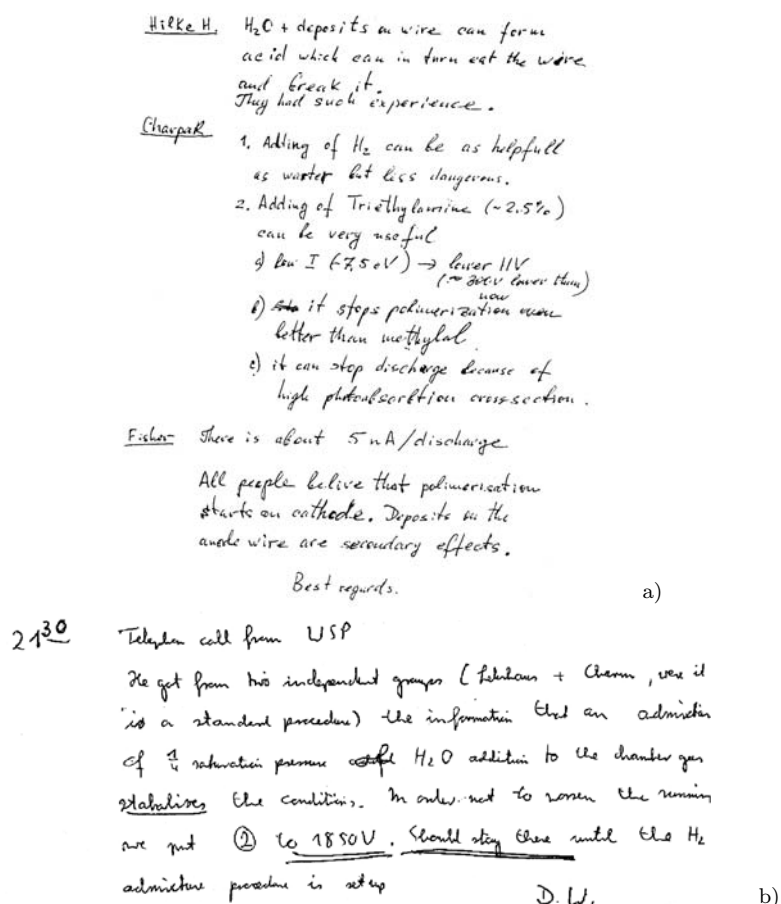 Hilke H. H₂O + deposits on wire can form
acid which can in turn eat the wire
and break it.
They had such experience.
Charpak
1. Adding of H₂ can be as helpfull
as warter but less dangerous.
2. Adding of Triethylamine (~2.5%)
can be very useful
a) low I (~7,5 eV) → lower HV
(~ 300V lower than)
now
b) it stops polimerization even
better than methylal
c) it can stop discharge because of
high photoabsorbtion cross-section.
Fisher There is about 5 nA/discharge
All people belive that polimerisation
starts on cathode. Deposits on the
anode wire are secondary effects.
Best regards.
a)
21³⁰ Telephon call from USP
He got from two independent groups ( + Charm, were it
is a standard procedure) the information that an admixture
of ¼ saturation pressure H₂O addition to the chamber gas
stabalises the conditions. In order not to worsen the running
we put ② to 1850V. Should stay there until the H₂
admixture procedure is set up
D.W.
b)